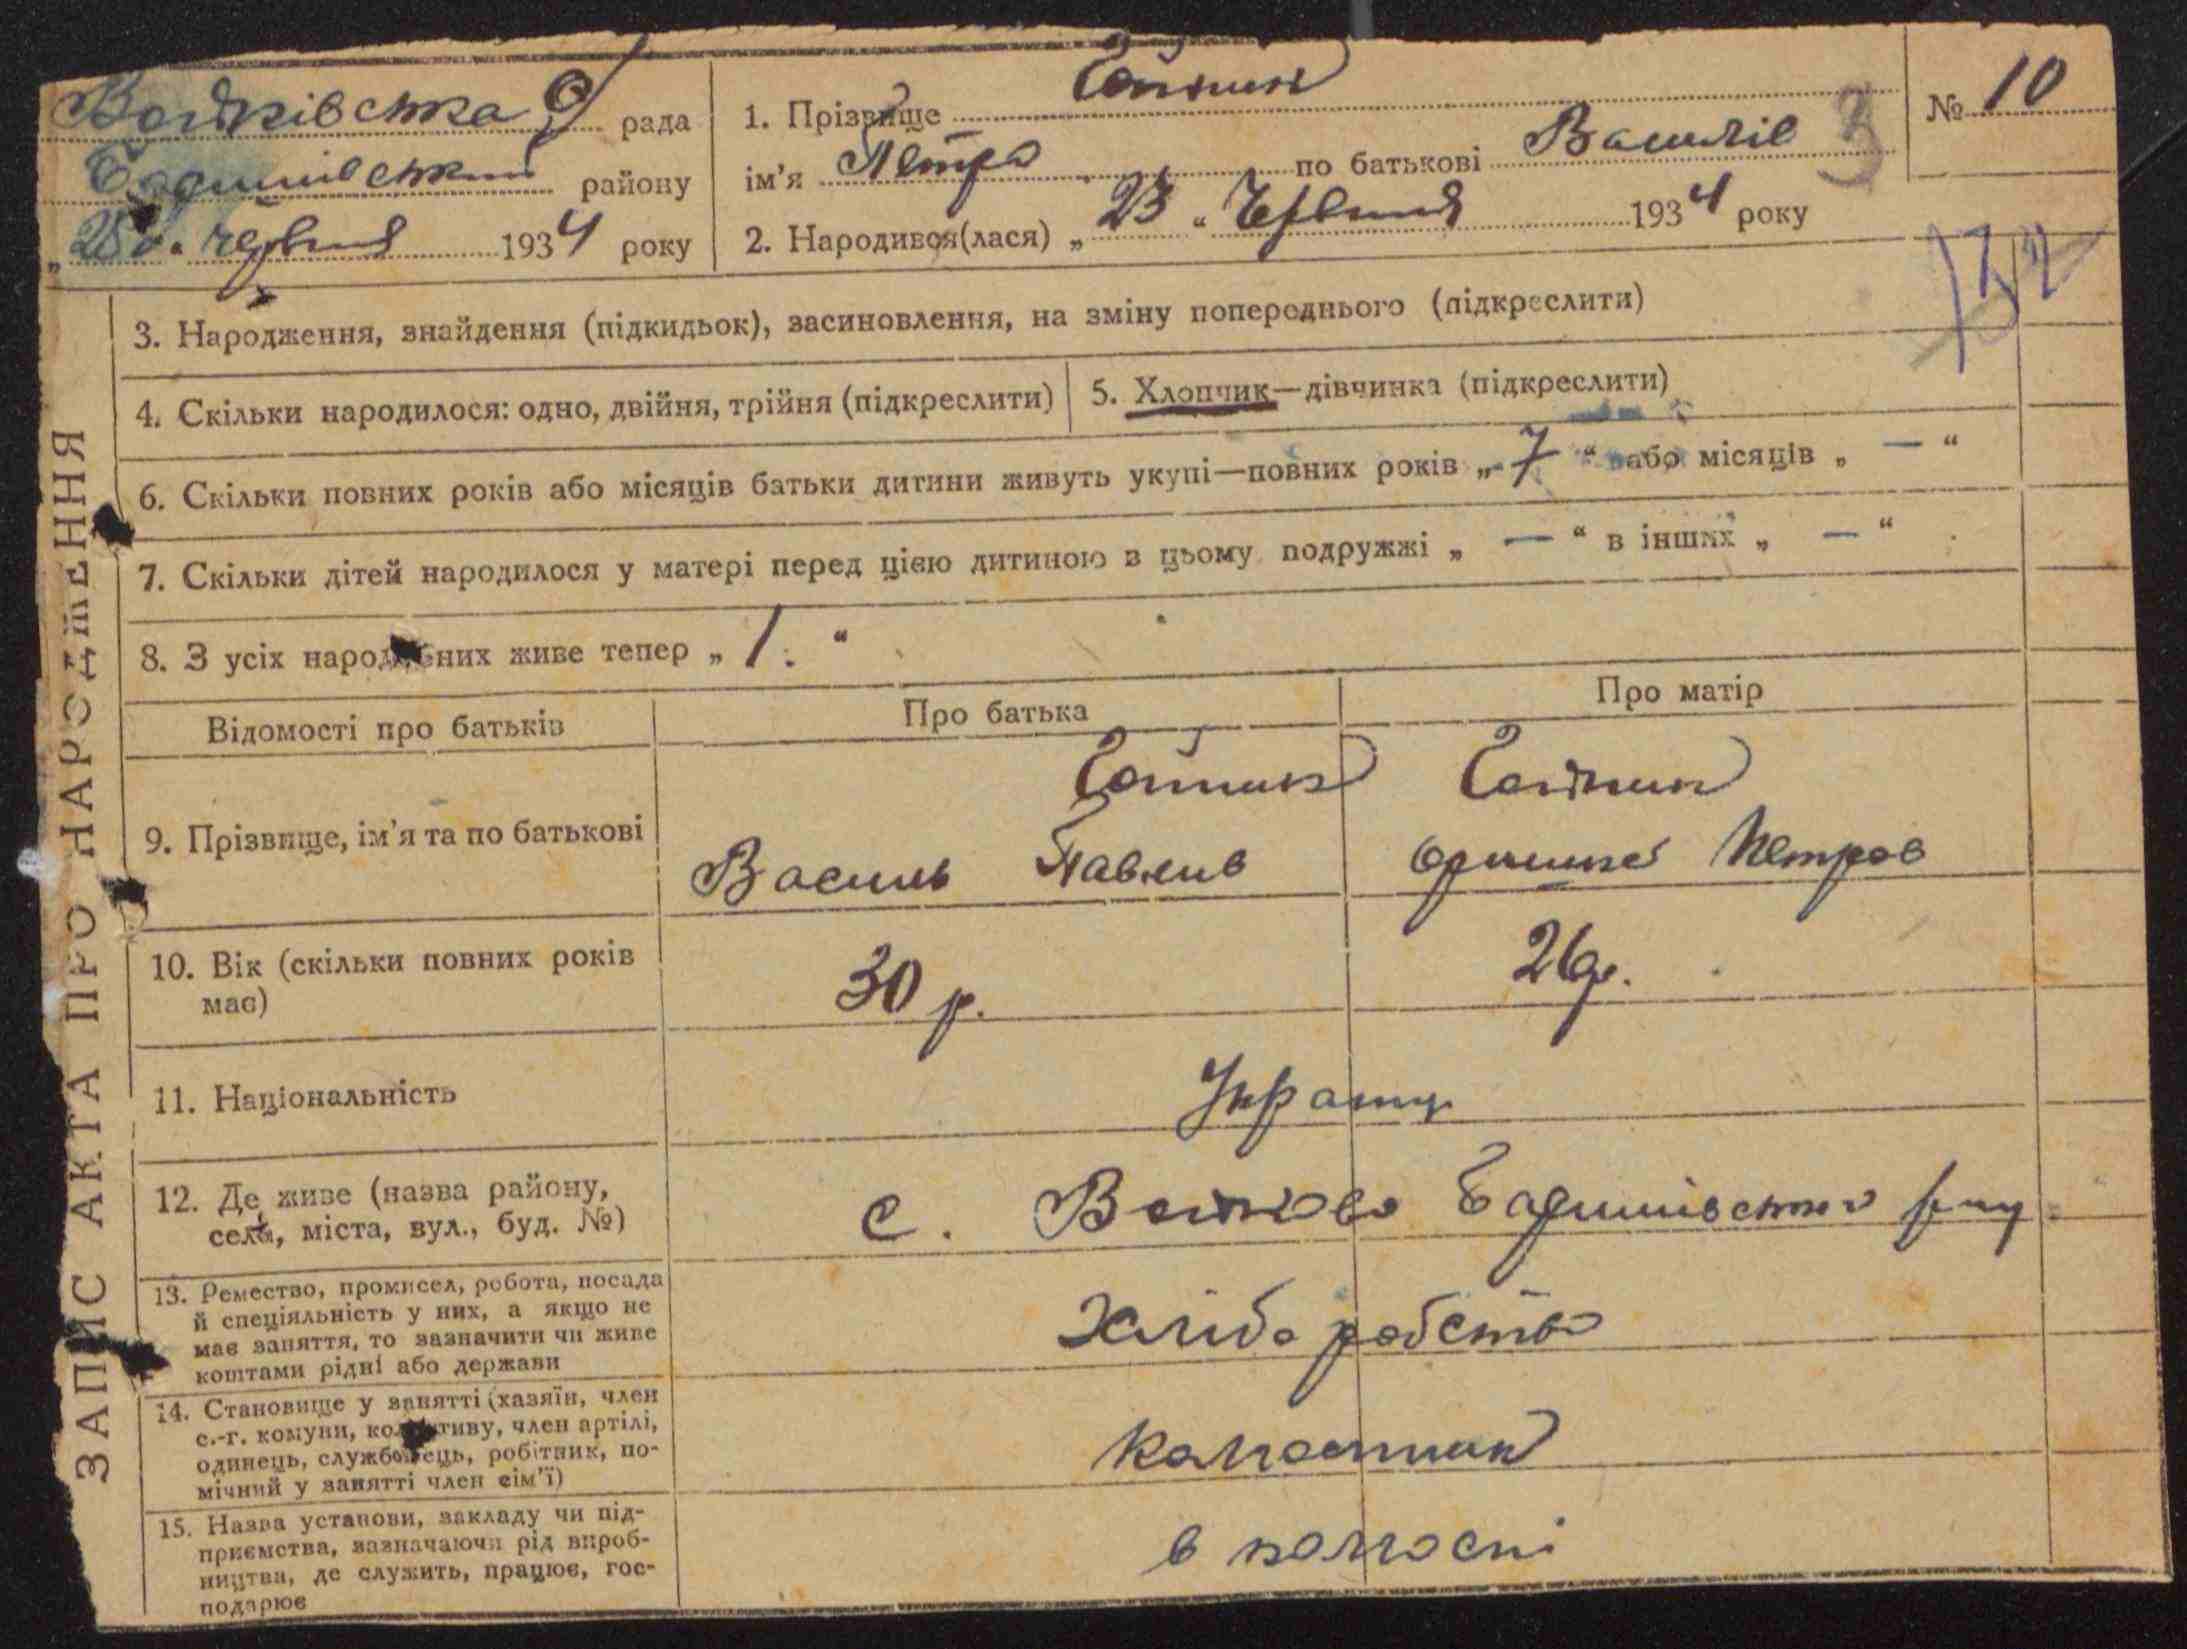 Войківська С/ рада
Баришівський району
„ 25 “ червня 1934 року
1. Прізвище Гойник
ім’я Петро по батькові Василів 3
2. Народився(лася) „ 23 “ Червня 1934 року
№ 10
132
3. Народження, знайдення (підкидьок), засиновлення, на зміну попероднього (підкреслити)
4. Скільки народилося: одно, двійня, трійня (підкреслити)
5. Хлопчик—дівчинка (підкреслити)
6. Скільки повних років або місяців батьки дитини живуть укупі—повних років „ 7 “ або місяців „ — “
7. Скільки дітей народилося у матері перед цією дитиною в цьому подружжі „ — “ в інших „ — “
8. З усіх народжених живе тепер „ 1. “
Відомості про батьків
Про батька
Про матір
9. Прізвище, ім’я та по батькові
Гойник
Василь Павлив
Гойник
Оришка Петров
10. Вік (скільки повних років
має)
30 р.
26 р.
11. Національність
Украти
12. Де живе (назва району,
села, міста, вул., буд. №)
с. Войково Баришівського р-ну
13. Ремество, промисел, робота, посада
й спеціяльність у них, а якщо не
має заняття, то зазначити чи живе
коштами рідні або держави
Хліборобство
14. Становище у занятті (хазяїн, член
с.-г. комуни, колективу, член артілі,
одинець, службовець, робітник, по-
мічний у занятті член сім’ї)
Колгоспник
15. Назва установи, закладу чи під-
приємства, зазначаючи рід вироб-
ництва, де служить, працює, гос-
подарює
в колгоспі
ЗАПИС АКТА ПРО НАРОДЖЕННЯ